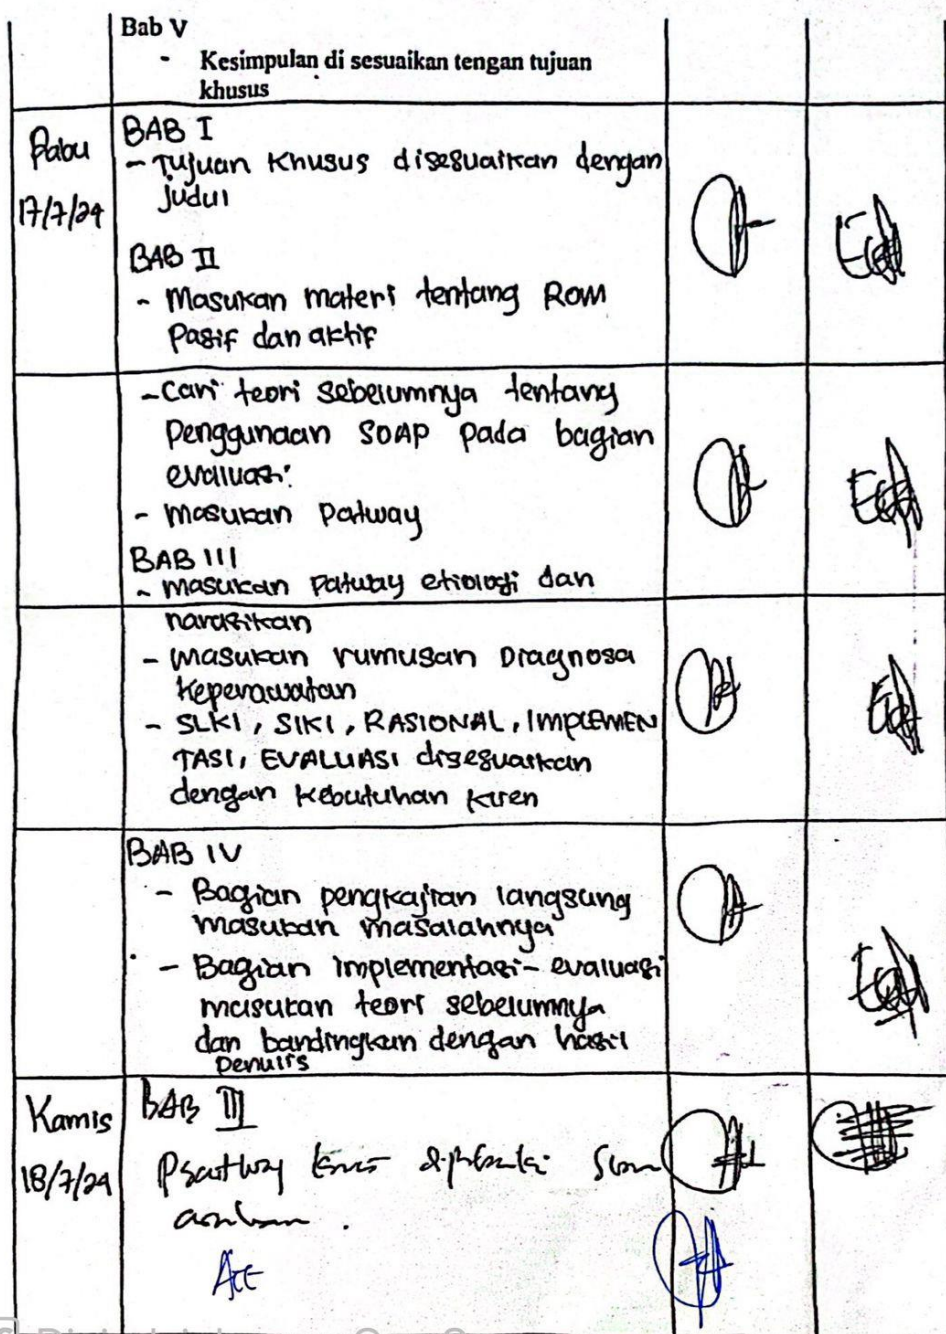 Bab V
- Kesimpulan di sesuaikan tengan tujuan
khusus
Rabu
17/7/24
BAB I
- Tujuan Khusus disesuaikan dengan
judul
BAB II
- Masukan materi tentang ROM
Pasif dan aktif
- Cari teori sebelumnya tentang
Penggunaan SOAP pada bagian
evaluasi.
- masukan Patway
BAB III
- masukan patway etiologi dan
narasikan
- masukan rumusan Diagnosa
Keperawatan
- SLKI, SIKI, RASIONAL, IMPLEMEN
TASI, EVALUASI disesuaikan
dengan kebutuhan klien
BAB IV
- Bagian pengkajian langsung
masukan masalahnya
- Bagian implementasi - evaluasi
masukan teori sebelumnya
dan bandingkan dengan hasil
penulis
Kamis
18/7/24
BAB III
Acc